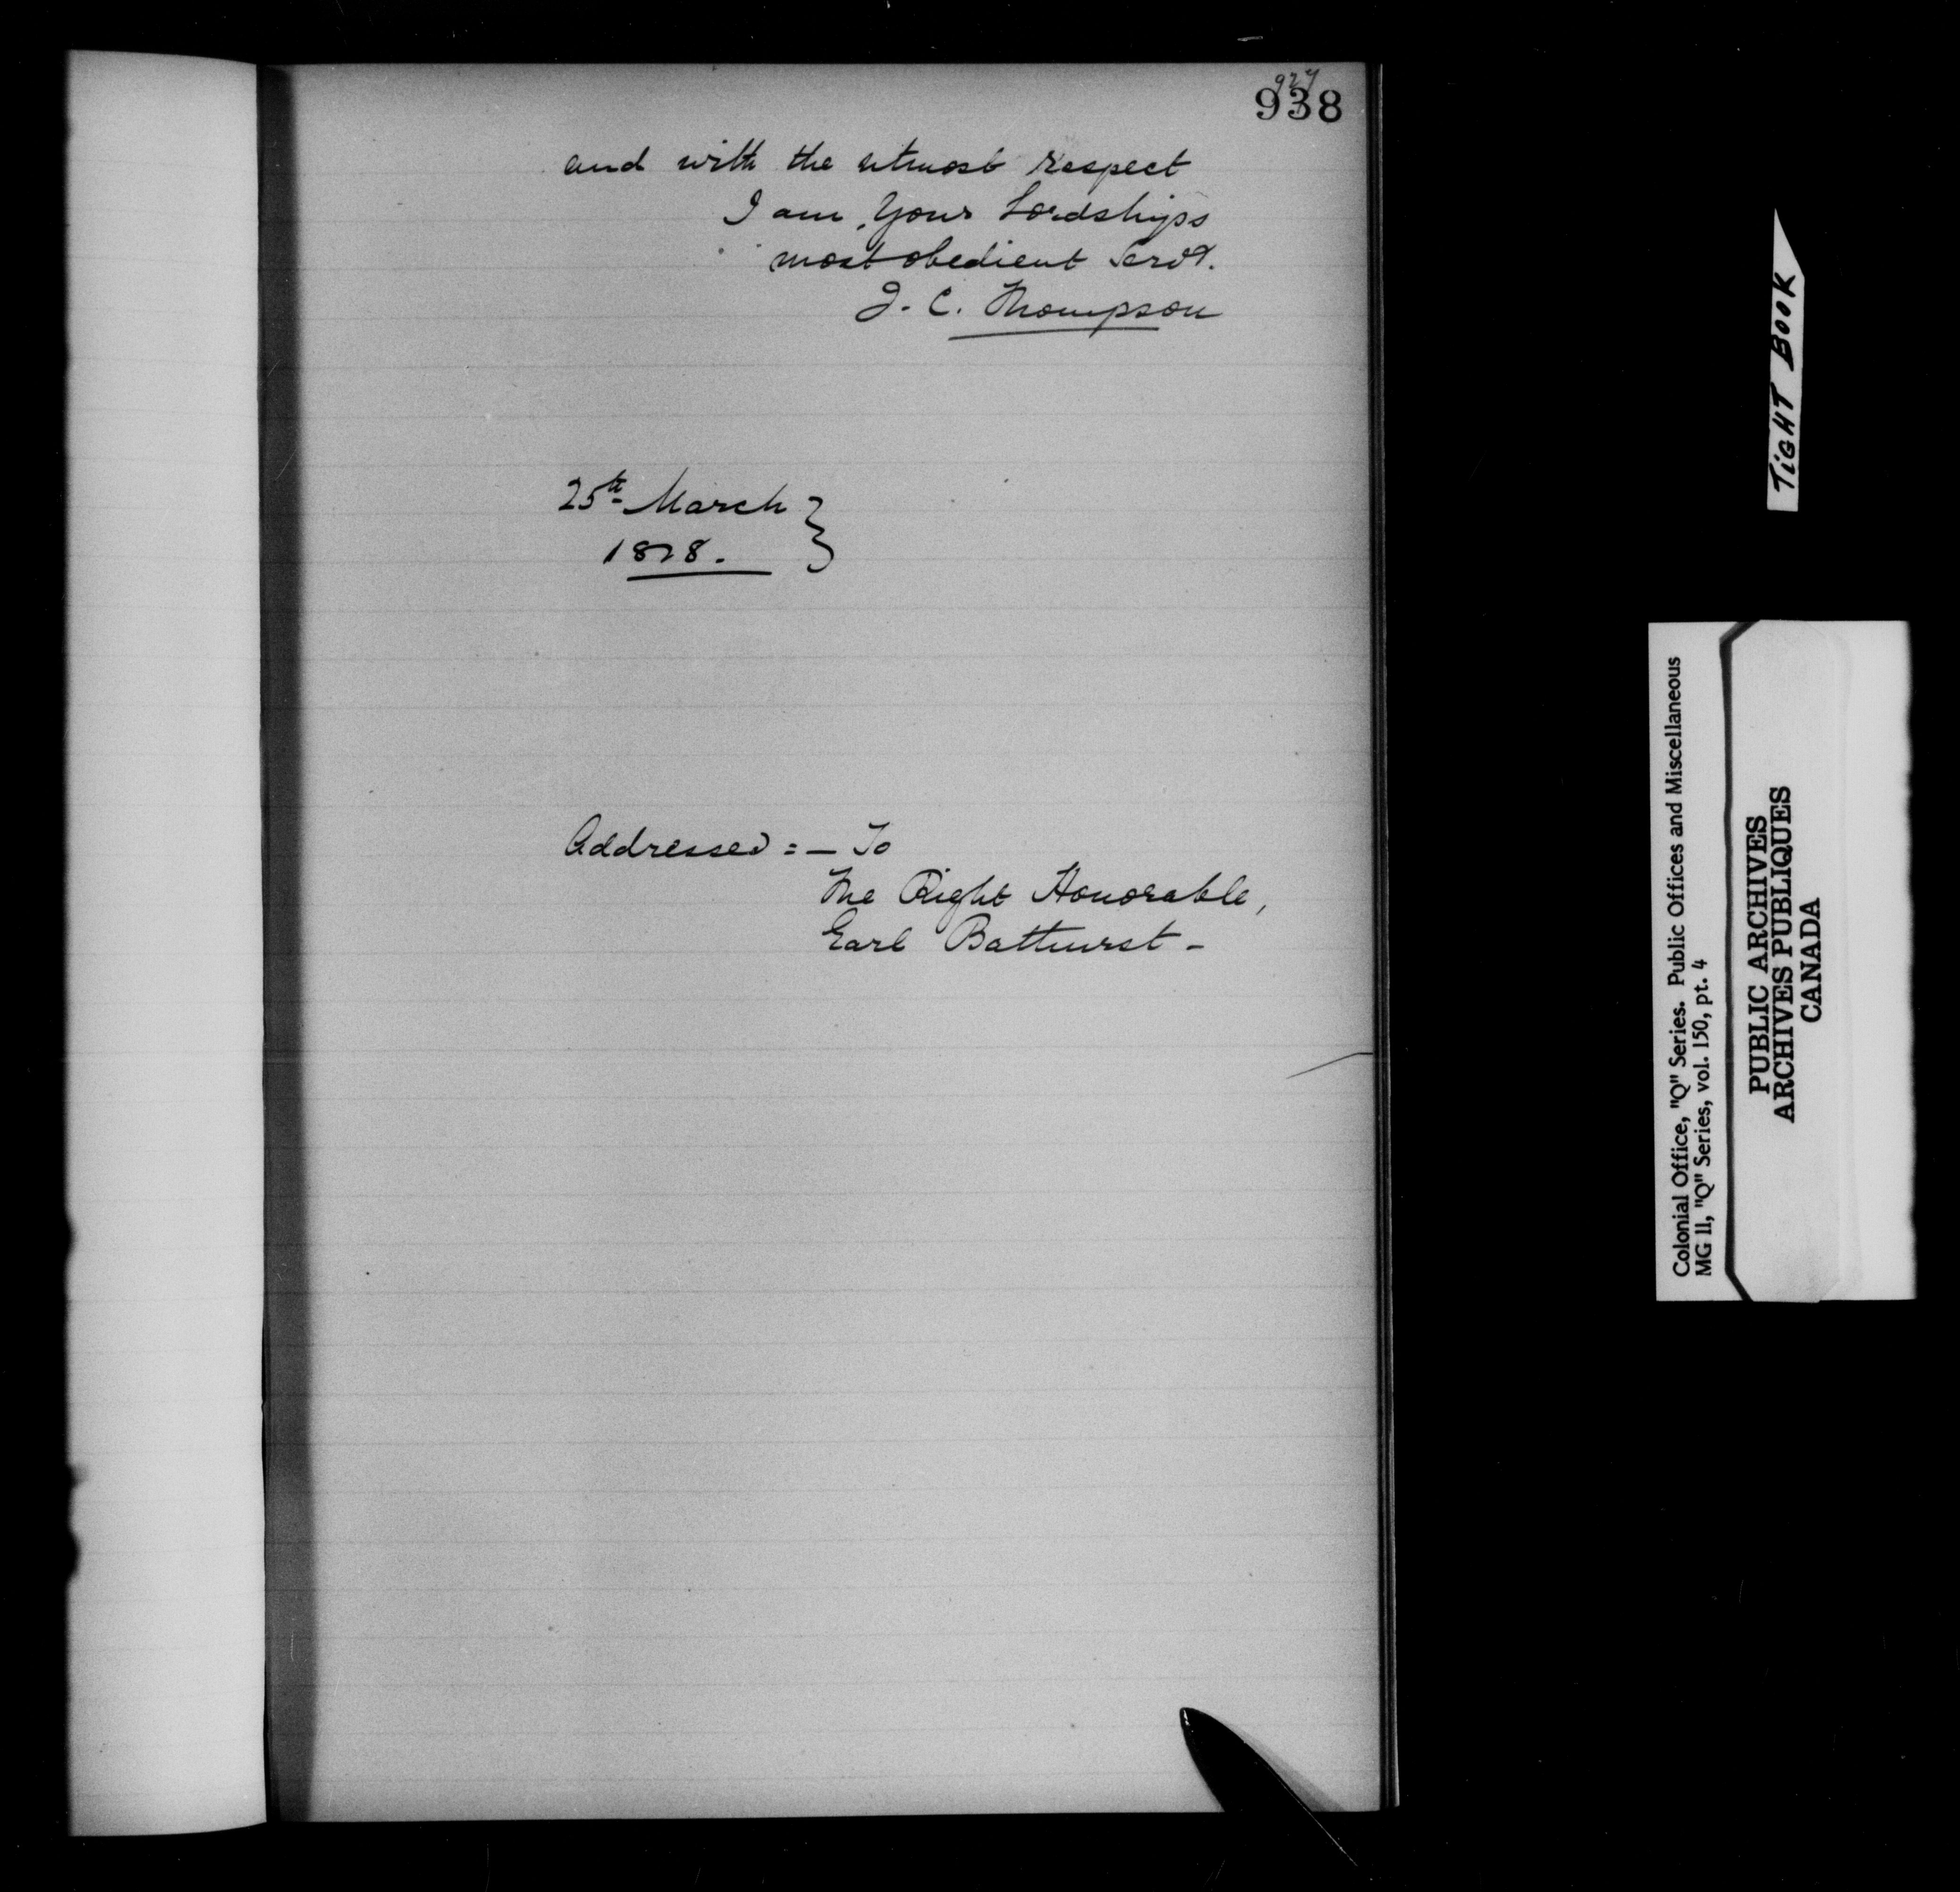 927
938
and with the utmost respect
I am, Your Lordships
most obedient Servt.
J. C. Thompson
25th March
1818.
Addressed = — To
The Right Honorable,
Earl Bathurst -
TIGHT BOOK
Colonial Office, "Q" Series. Public Offices and Miscellaneous
MG 11, "Q" Series, vol. 150, pt. 4
PUBLIC ARCHIVES
ARCHIVES PUBLIQUES
CANADA